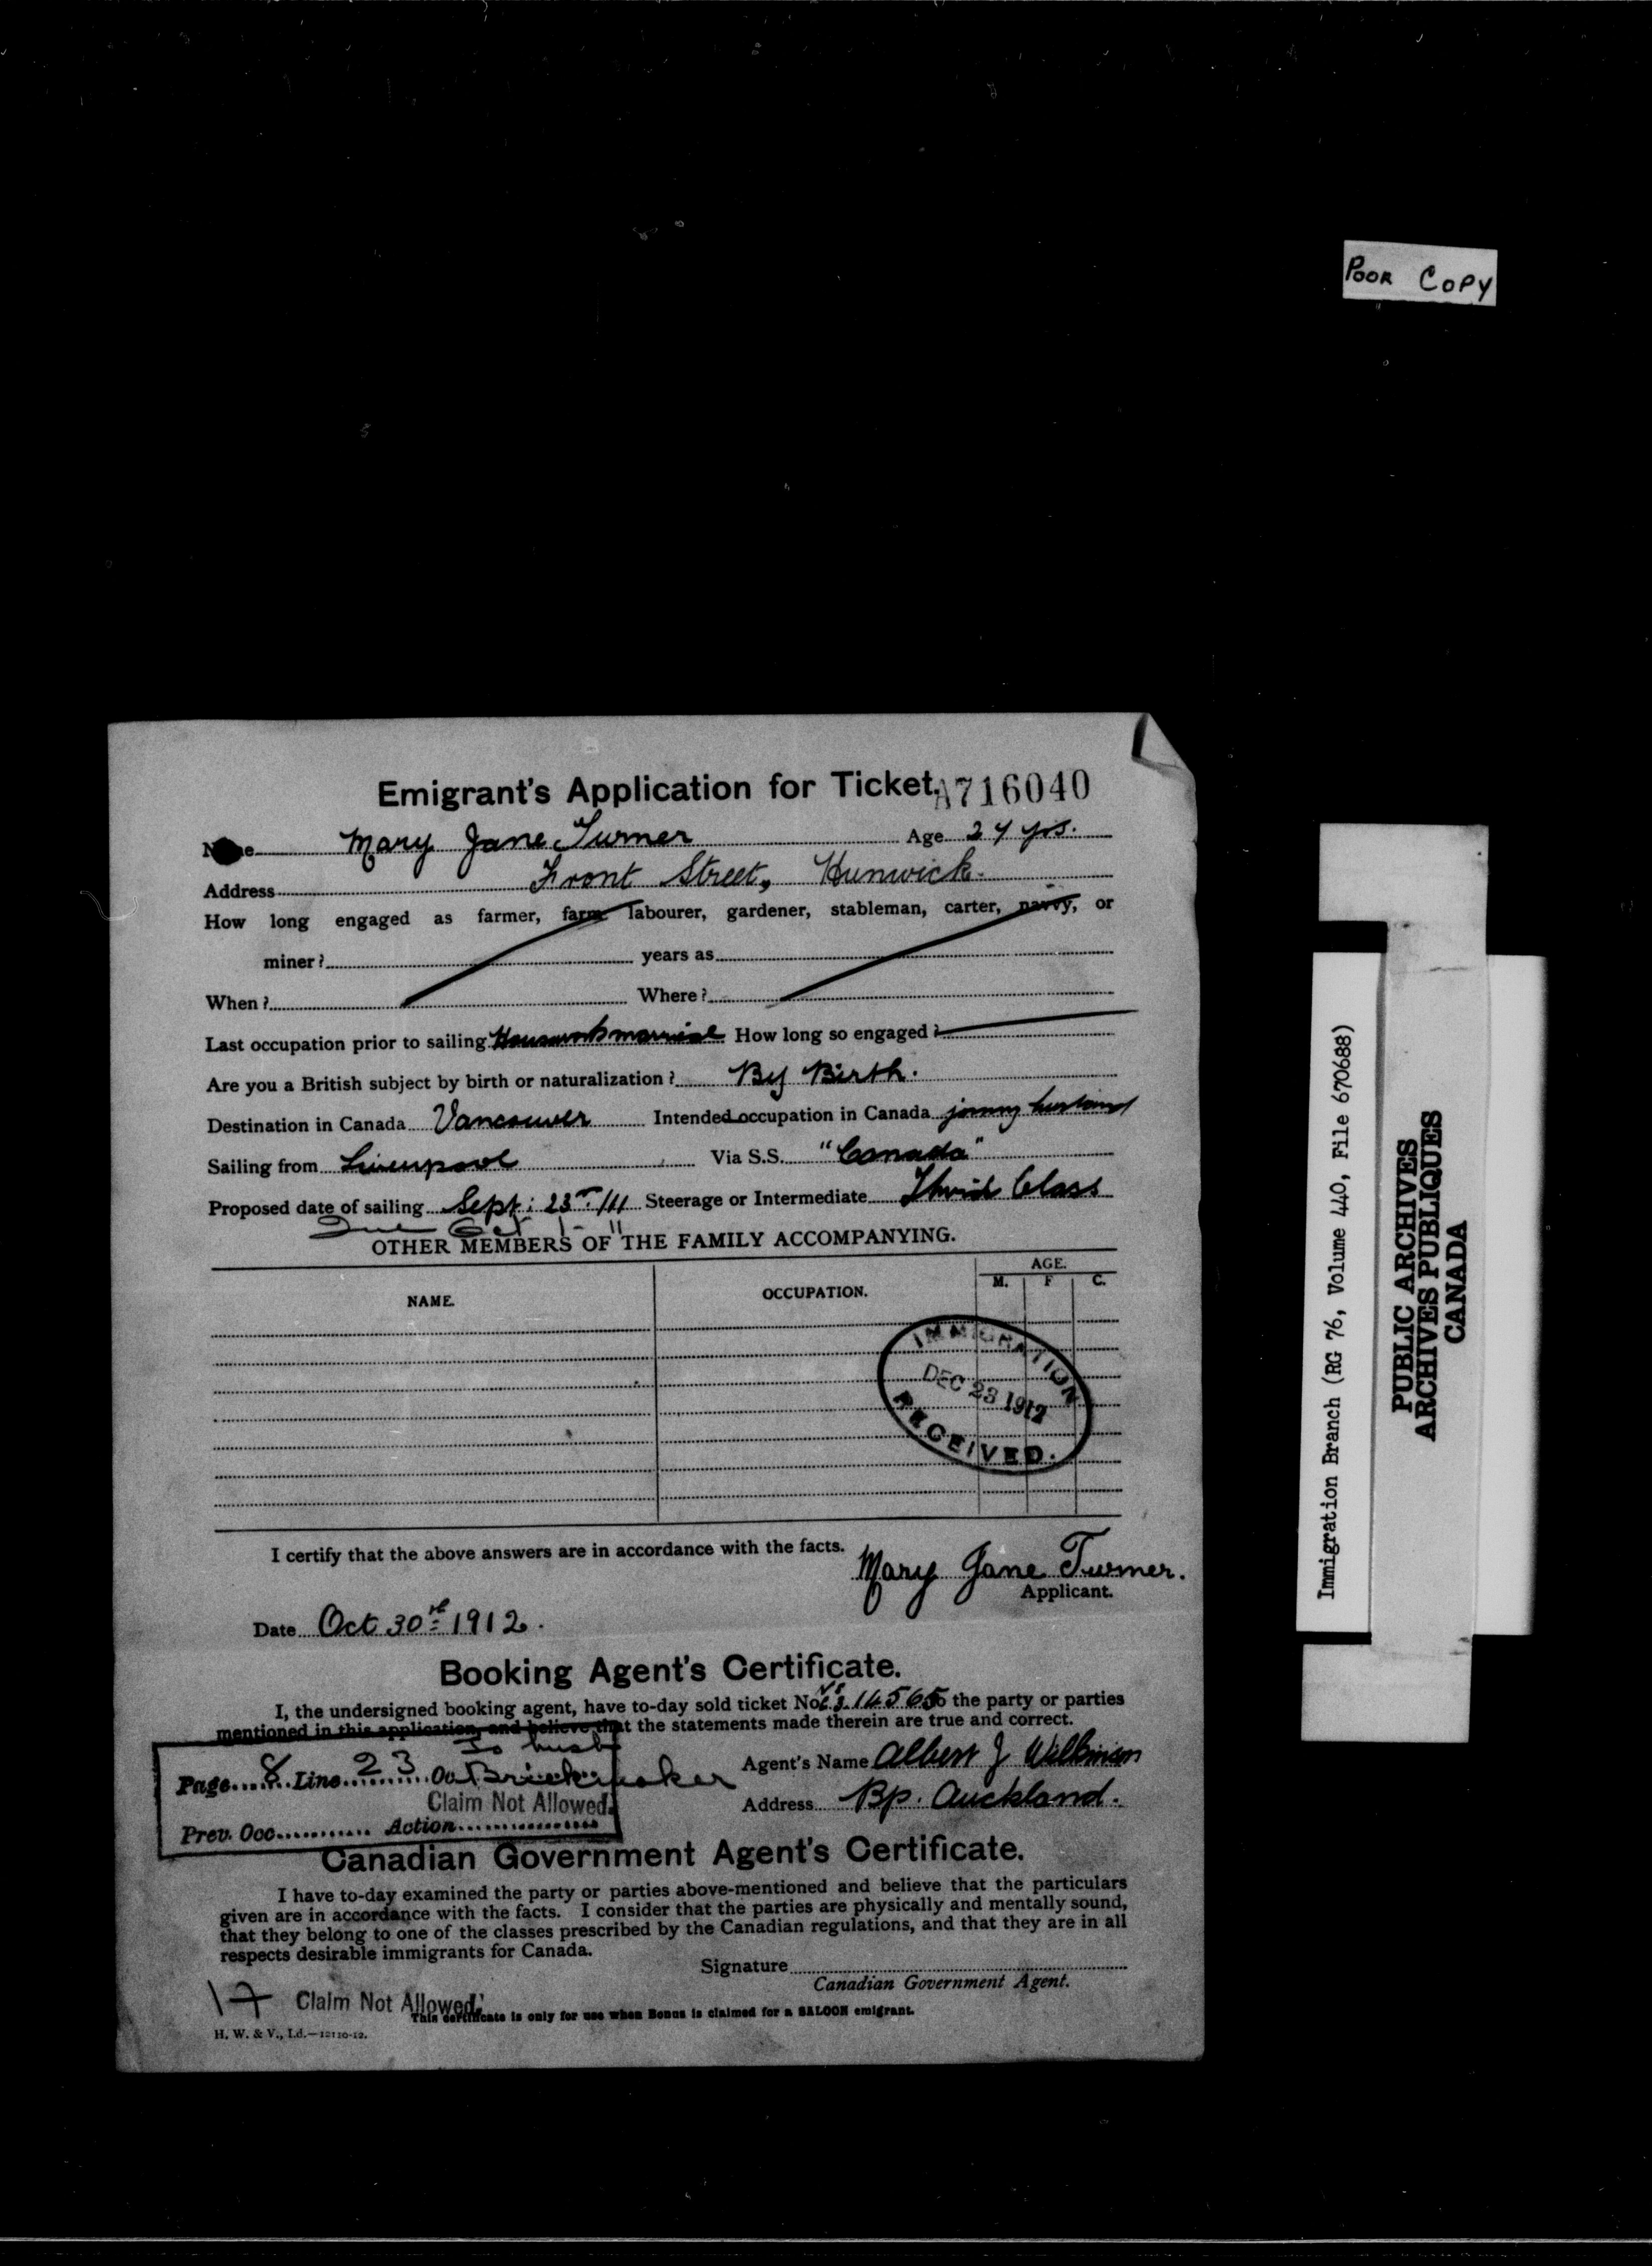 POOR COPY
Emigrant's Application for Ticket. A716040
Name Mary Jane Turner Age 24 yrs.
Address Front Street, Hunwick.
How long engaged as farmer, farm labourer, gardener, stableman, carter, navvy, or
miner? years as
When? Where?
Last occupation prior to sailing Housework married How long so engaged?
Are you a British subject by birth or naturalization? By Birth.
Destination in Canada Vancouver Intended occupation in Canada joining husband
Sailing from Liverpool Via S.S. "Canada"
Proposed date of sailing Sept: 23rd/11 Steerage or Intermediate Third Class
Due Oct 1-11
OTHER MEMBERS OF THE FAMILY ACCOMPANYING.
NAME. OCCUPATION. AGE.
M. F C.
IMMIGRATION
DEC 23 1912
RECEIVED.
I certify that the above answers are in accordance with the facts.
Mary Jane Turner.
Applicant.
Date Oct 30th 1912.
Booking Agent's Certificate.
I, the undersigned booking agent, have to-day sold ticket No. 14565 to the party or parties
mentioned in this application, and believe that the statements made therein are true and correct.
To husb
Page 8 Line 23 Oc Brickmaker
Claim Not Allowed.
Prev. Occ. Action
Agent's Name Albert J Wilkinson
Address Bp. Auckland.
Canadian Government Agent's Certificate.
I have to-day examined the party or parties above-mentioned and believe that the particulars
given are in accordance with the facts. I consider that the parties are physically and mentally sound,
that they belong to one of the classes prescribed by the Canadian regulations, and that they are in all
respects desirable immigrants for Canada.
Signature
Canadian Government Agent.
17 Claim Not Allowed.
This certificate is only for use when Bonus is claimed for a SALOON emigrant.
H. W. & V., Ld.—12110-12.
Immigration Branch (RG 76, Volume 440, File 670688)
PUBLIC ARCHIVES
ARCHIVES PUBLIQUES
CANADA